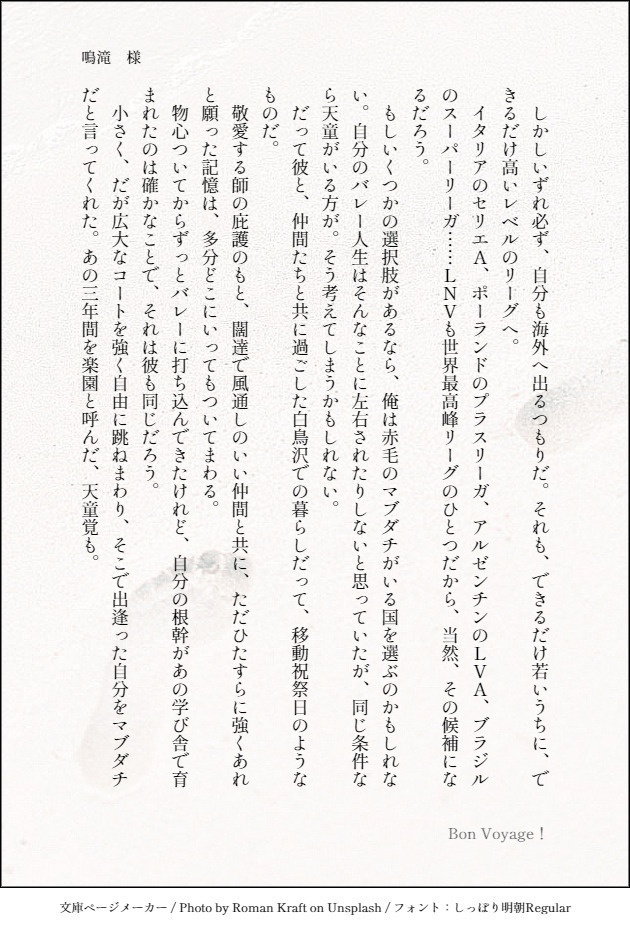 鳴滝　様
　しかしいずれ必ず、自分も海外へ出るつもりだ。それも、できるだけ若いうちに、で
きるだけ高いレベルのリーグへ。
　イタリアのセリエA、ポーランドのプラスリーガ、アルゼンチンのLVA、ブラジル
のスーパーリーガ……LNVも世界最高峰リーグのひとつだから、当然、その候補にな
るだろう。
　もしいくつかの選択肢があるなら、俺は赤毛のマブダチがいる国を選ぶのかもしれな
い。自分のバレー人生はそんなことに左右されたりしないと思っていたが、同じ条件な
ら天童がいる方が。そう考えてしまうかもしれない。
　だって彼と、仲間たちと共に過ごした白鳥沢での暮らしだって、移動祝祭日のような
ものだ。
　敬愛する師の庇護のもと、闊達で風通しのいい仲間と共に、ただひたすらに強くあれ
と願った記憶は、多分どこにいってもついてまわる。
　物心ついてからずっとバレーに打ち込んできたけれど、自分の根幹があの学び舎で育
まれたのは確かなことで、それは彼も同じだろう。
　小さく、だが広大なコートを強く自由に跳ねまわり、そこで出逢った自分をマブダチ
だと言ってくれた。あの三年間を楽園と呼んだ、天童覚も。
Bon Voyage！
文庫ページメーカー / Photo by Roman Kraft on Unsplash / フォント：しっぽり明朝Regular